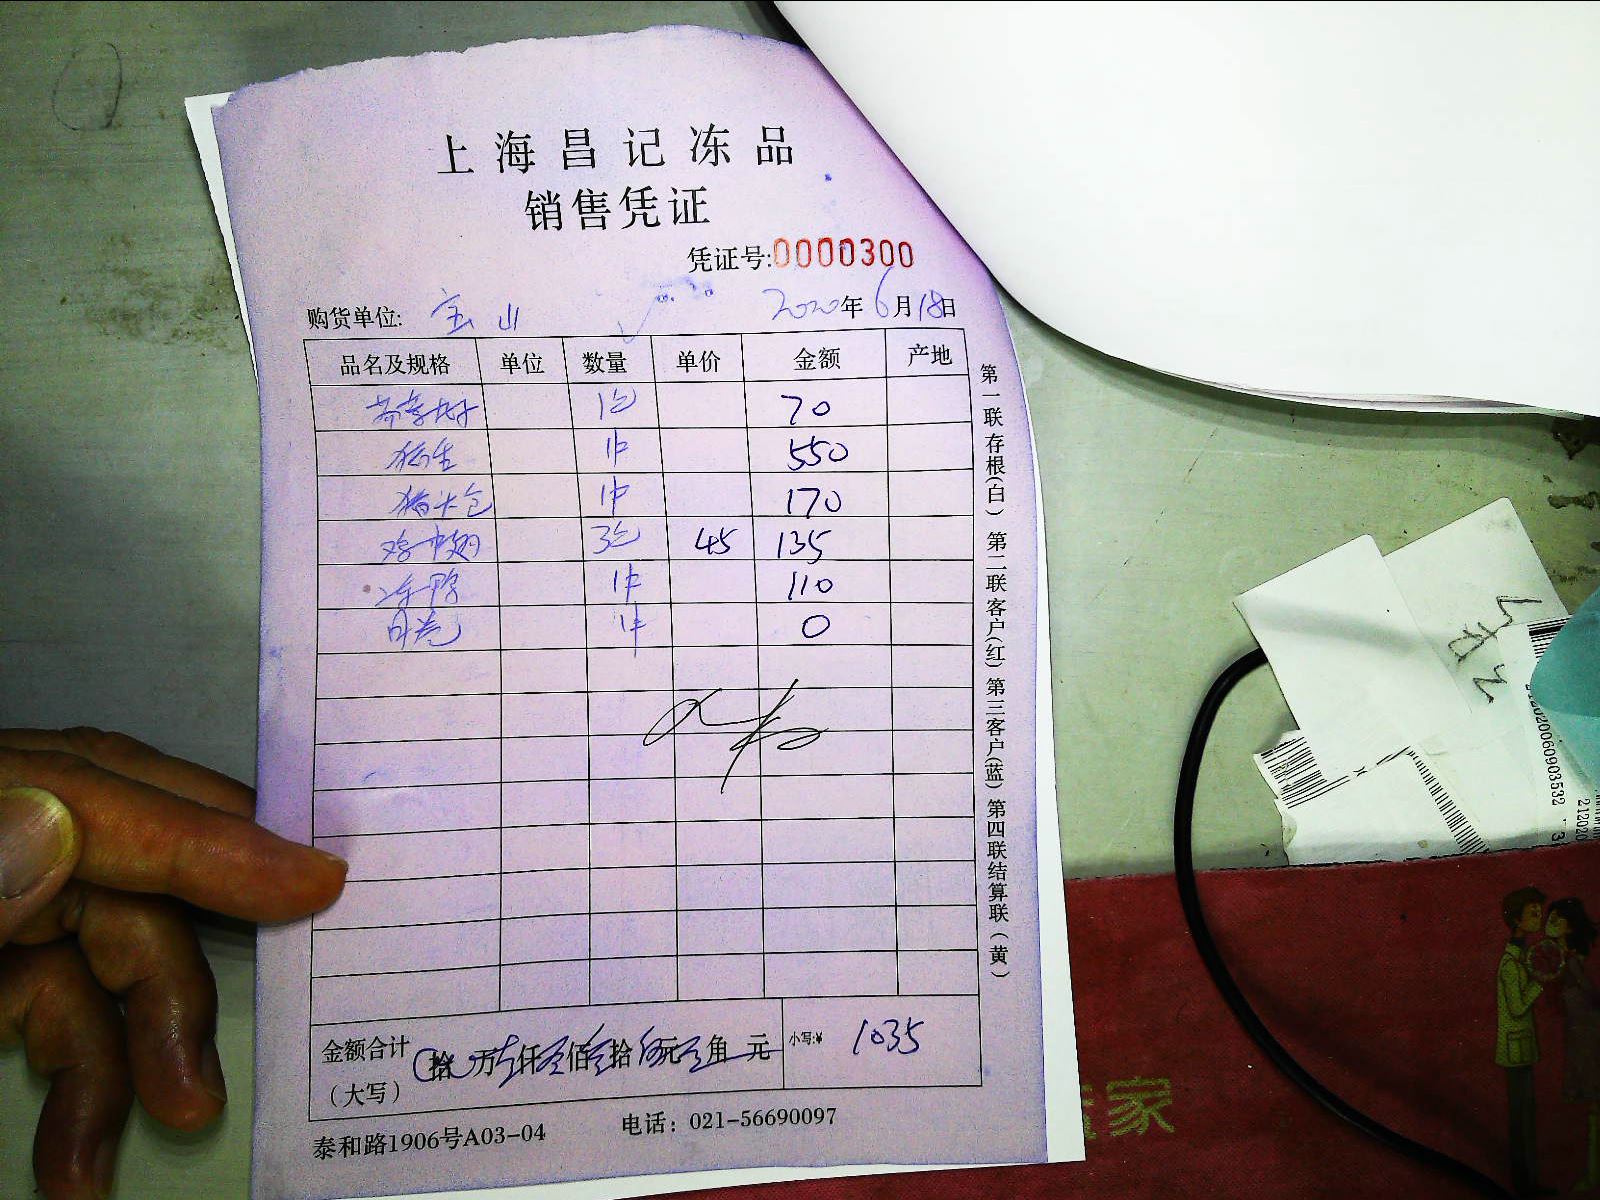 上海昌记冻品
销售凭证
凭证号:0000300
购货单位: 宝山 2020年6月18日
品名及规格 单位 数量 单价 金额 产地
1包 70
1件 550
1件 170
鸡中翅 3包 45 135
冻鸭 1件 110
1件 0
金额合计 拾 万 仟 佰 拾 元 角 元 小写:¥ 1035
(大写)
泰和路1906号A03-04 电话：021-56690097
第一联存根(白) 第二联客户(红) 第三客户(蓝) 第四联结算联(黄)
家